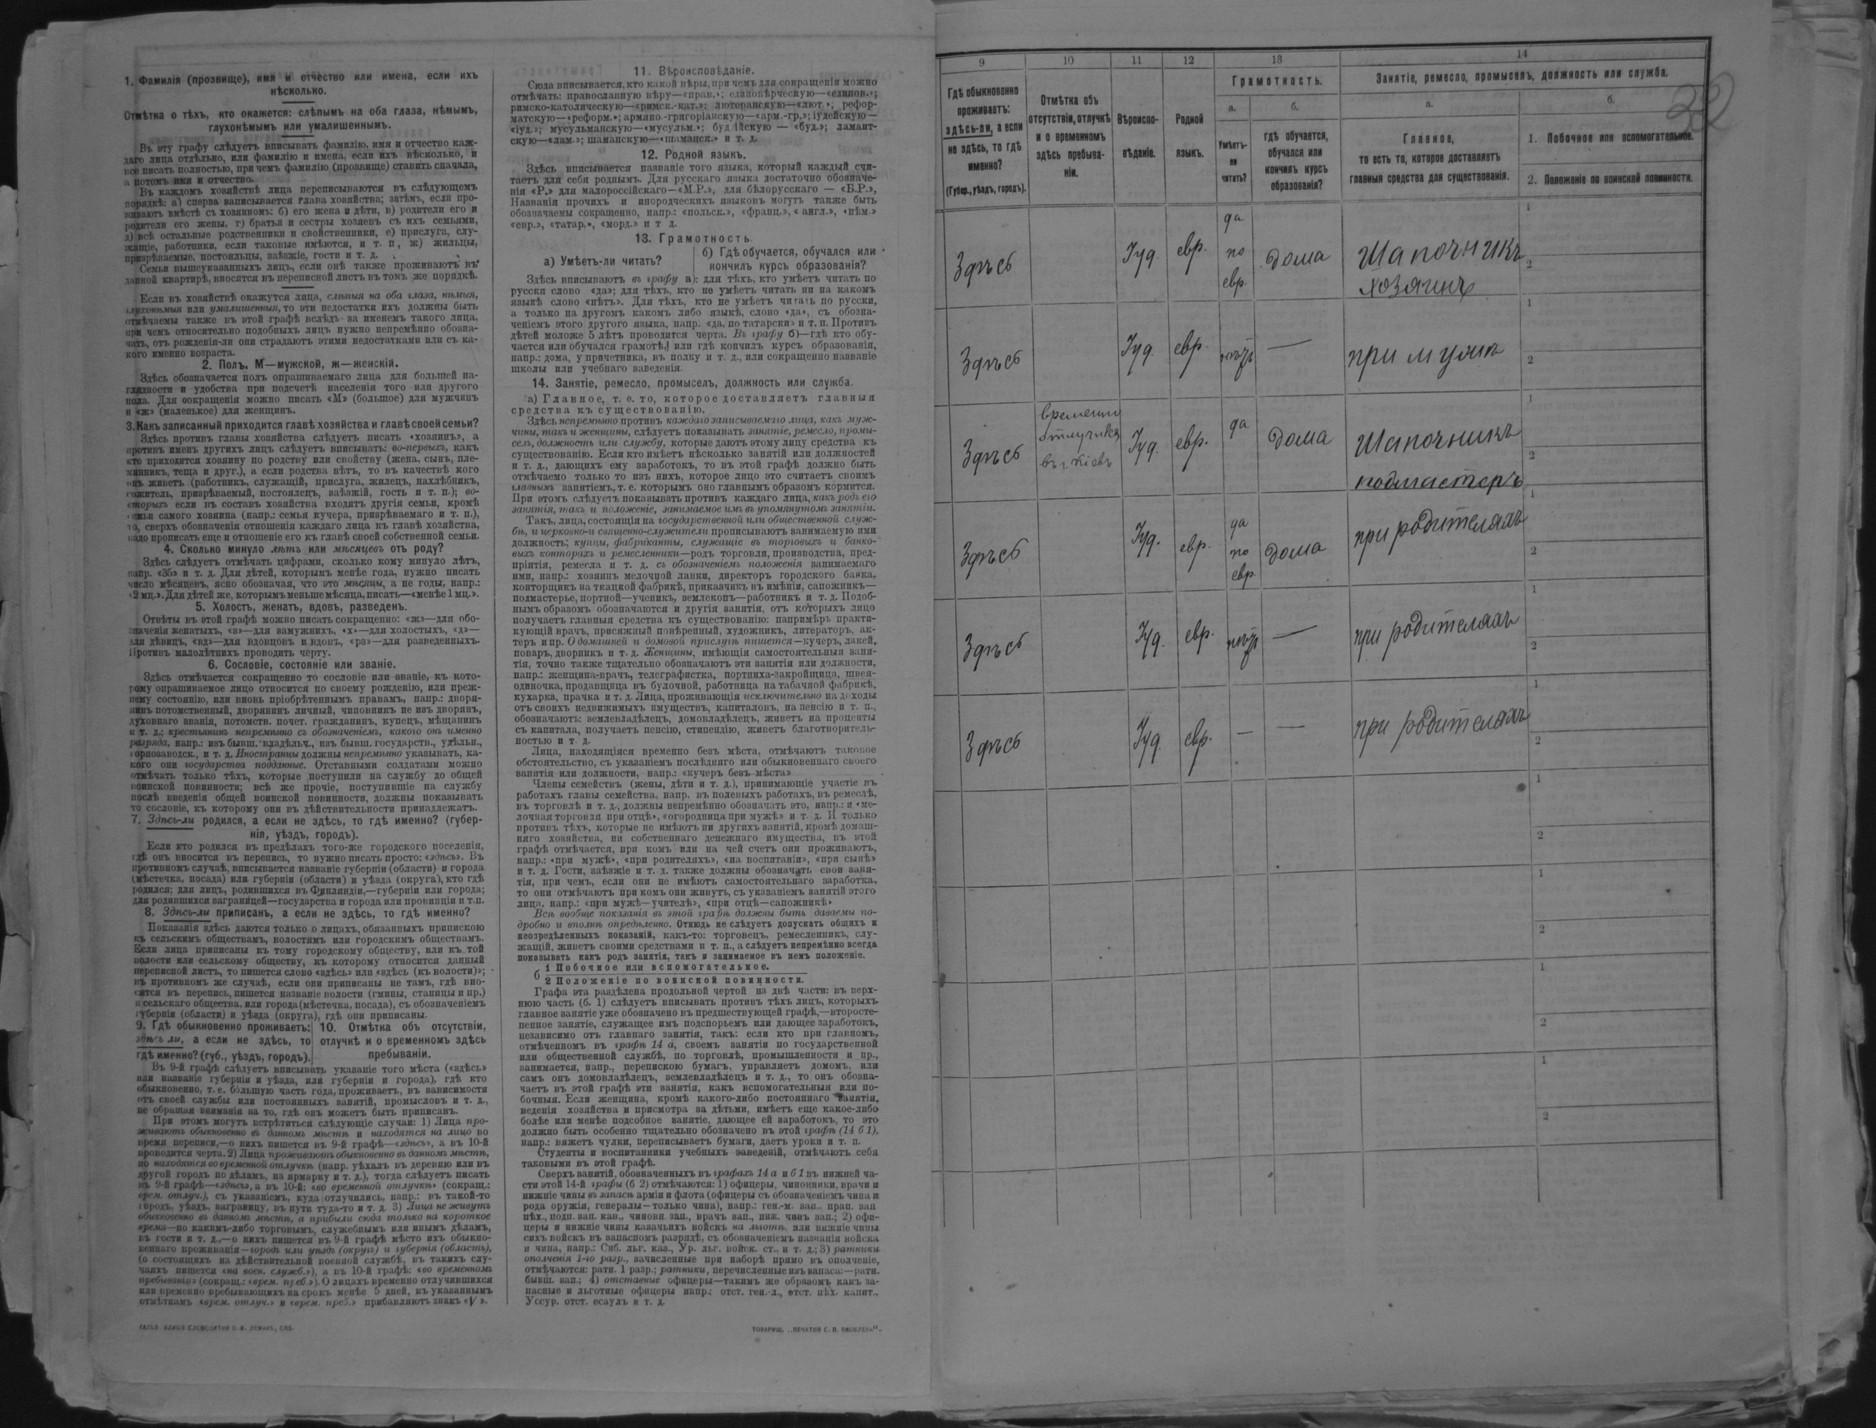 1. Фамилія (прозвище), имя и отчество или имена, если ихъ
нѣсколько.
Отмѣтка о тѣхъ, кто окажется: слѣпымъ на оба глаза, нѣмымъ,
глухонѣмымъ или умалишеннымъ.
Въ эту графу слѣдуетъ вписывать фамилію, имя и отчество каж-
даго лица отдѣльно, или фамилію и имена, если ихъ нѣсколько, и
все писать полностью, при чемъ фамилію (прозвище) ставить сначала,
а потомъ имя и отчество.
Въ каждомъ хозяйствѣ лица переписываются въ слѣдующемъ
порядкѣ: а) сперва записывается глава хозяйства; затѣмъ, если про-
живаютъ вмѣстѣ съ хозяиномъ: б) его жена и дѣти, в) родители его и
родители его жены, г) братья и сестры хозяевъ съ ихъ семьями,
д) всѣ остальные родственники и свойственники, е) прислуга, слу-
жащіе, работники, если таковые имѣются, и т. п., ж) жильцы,
призрѣваемые, постояльцы, заѣзжіе, гости и т. д.
Семьи вышеуказанныхъ лицъ, если онѣ также проживаютъ въ
данной квартирѣ, вносятся въ переписной листъ въ томъ же порядкѣ.
Если въ хозяйствѣ окажутся лица, слѣпыя на оба глаза, нѣмыя,
глухонѣмыя или умалишенныя, то эти недостатки ихъ должны быть
отмѣчаемы также въ этой графѣ вслѣдъ за именемъ такого лица,
при чемъ относительно подобныхъ лицъ нужно непремѣнно обозна-
чать, отъ рожденія-ли они страдаютъ этими недостатками или съ ка-
кого именно возраста.
2. Полъ. М—мужской, ж—женскій.
Здѣсь обозначается полъ опрашиваемаго лица для большей на-
глядности и удобства при подсчетѣ населенія того или другого
пола. Для сокращенія можно писать «М» (большое) для мужчинъ
и «ж» (маленькое) для женщинъ.
3. Какъ записанный приходится главѣ хозяйства и главѣ своей семьи?
Здѣсь противъ главы хозяйства слѣдуетъ писать «хозяинъ», а
противъ именъ другихъ лицъ слѣдуетъ вписывать: во-первыхъ, какъ
кто приходится хозяину по родству или свойству (жена, сынъ, пле-
мянникъ, теща и друг.), а если родства нѣтъ, то въ качествѣ кого
онъ живетъ (работникъ, служащій, прислуга, жилецъ, нахлѣбникъ,
сожитель, призрѣваемый, постоялецъ, заѣзжій, гость и т. п.); во-
вторыхъ если въ составъ хозяйства входятъ другія семьи, кромѣ
семьи самого хозяина (напр.: семья кучера, призрѣваемаго и т. п.),
то, сверхъ обозначенія отношенія каждаго лица къ главѣ хозяйства,
надо прописать еще и отношеніе его къ главѣ своей собственной семьи.
4. Сколько минуло лѣтъ или мѣсяцевъ отъ роду?
Здѣсь слѣдуетъ отмѣчать цифрами, сколько кому минуло лѣтъ,
напр. «35» и т. д. Для дѣтей, которымъ менѣе года, нужно писать
число мѣсяцевъ, ясно обозначая, что это мѣсяцы, а не годы, напр.:
«2 мц.». Для дѣтей же, которымъ меньше мѣсяца, писать—«менѣе 1 мц.».
5. Холостъ, женатъ, вдовъ, разведенъ.
Отвѣты въ этой графѣ можно писать сокращенно: «ж»—для обо-
значенія женатыхъ, «з»—для замужнихъ, «х»—для холостыхъ, «д»—
для дѣвицъ, «вд»—для вдовцовъ и вдовъ, «рз»—для разведенныхъ.
Противъ малолѣтнихъ проводить черту.
6. Сословіе, состояніе или званіе.
Здѣсь отмѣчается сокращенно то сословіе или званіе, къ кото-
рому опрашиваемое лицо относится по своему рожденію, или преж-
нему состоянію, или вновь пріобрѣтеннымъ правамъ, напр.: дворя-
нинъ потомственный, дворянинъ личный, чиновникъ не изъ дворянъ,
духовнаго званія, потомств. почет. гражданинъ, купецъ, мѣщанинъ
и т. д.; крестьянинъ непремѣнно съ обозначеніемъ, какого онъ именно
разряда, напр.: изъ бывш. владѣльч., изъ бывш. государств., удѣльн.,
горнозаводск., и т. д. Иностранцы должны непремѣнно указывать, ка-
кого они государства подданные. Отставными солдатами можно
отмѣчать только тѣхъ, которые поступили на службу до общей
воинской повинности; всѣ же прочіе, поступившіе на службу
послѣ введенія общей воинской повинности, должны показывать
то сословіе, къ которому они въ дѣйствительности принадлежатъ.
7. Здѣсь-ли родился, а если не здѣсь, то гдѣ именно? (губер-
нія, уѣздъ, городъ).
Если кто родился въ предѣлахъ того-же городского поселенія,
гдѣ онъ вносится въ перепись, то нужно писать просто: «здѣсь». Въ
противномъ случаѣ, вписывается названіе губерніи (области) и города
(мѣстечка, посада) или губерніи (области) и уѣзда (округа), кто гдѣ
родился; для лицъ, родившихся въ Финляндіи,—губерніи или города;
для родившихся заграницей—государства и города или провинціи и т.п.
8. Здѣсь-ли приписанъ, а если не здѣсь, то гдѣ именно?
Показанія здѣсь даются только о лицахъ, обязанныхъ припискою
къ сельскимъ обществамъ, волостямъ или городскимъ обществамъ.
Если лица приписаны къ тому городскому обществу, или къ той
волости или сельскому обществу, къ которому относится данный
переписной листъ, то пишется слово «здѣсь» или «здѣсь (къ волости)»;
въ противномъ же случаѣ, если они приписаны не тамъ, гдѣ вно-
сятся въ перепись, пишется названіе волости (гмины, станицы и пр.)
и сельскаго общества, или города (мѣстечка, посада), съ обозначеніемъ
губерніи (области) и уѣзда (округа), гдѣ они приписаны.
9. Гдѣ обыкновенно проживаетъ:
здѣсь ли, а если не здѣсь, то
гдѣ именно? (губ., уѣздъ, городъ).
10. Отмѣтка объ отсутствіи,
отлучкѣ и о временномъ здѣсь
пребываніи.
Въ 9-й графѣ слѣдуетъ вписывать указаніе того мѣста («здѣсь»
или названіе губерніи и уѣзда, или губерніи и города), гдѣ кто
обыкновенно, т. е. большую часть года, проживаетъ, въ зависимости
отъ своей службы или постоянныхъ занятій, промысловъ и т. д.,
не обращая вниманія на то, гдѣ онъ можетъ быть приписанъ.
При этомъ могутъ встрѣтиться слѣдующіе случаи: 1) Лица про-
живаютъ обыкновенно въ данномъ мѣстѣ и находятся на лицо во
время переписи,—о нихъ пишется въ 9-й графѣ—«здѣсь», а въ 10-й
проводится черта. 2) Лица проживаютъ обыкновенно въ данномъ мѣстѣ,
но находятся во временной отлучкѣ (напр. уѣхалъ въ деревню или въ
другой городъ по дѣламъ, на ярмарку и т. д.), тогда слѣдуетъ писать
въ 9-й графѣ—«здѣсь», а въ 10-й: «во временной отлучкѣ» (сокращ.:
врем. отлуч.), съ указаніемъ, куда отлучились, напр.: въ такой-то
городъ, уѣздъ, заграницу, въ пути туда-то и т. д. 3) Лица не живутъ
обыкновенно въ данномъ мѣстѣ, а прибыли сюда только на короткое
время—по какимъ-либо торговымъ, служебнымъ или инымъ дѣламъ,
въ гости и т. д.,—о нихъ пишется въ 9-й графѣ мѣсто ихъ обыкно-
веннаго проживанія—городъ или уѣздъ (округъ) и губернія (область),
(о состоящихъ на дѣйствительной военной службѣ, въ такихъ слу-
чаяхъ пишется «на воен. служб.»), а въ 10-й графѣ: «во временномъ
пребываніи» (сокращ.: «врем. преб.»). О лицахъ временно отлучившихся
или временно пребывающихъ на срокъ менѣе 5 дней, къ указаннымъ
отмѣткамъ «врем. отлуч.» и «врем. преб.» прибавляютъ знакъ «V».
11. Вѣроисповѣданіе.
Сюда вписывается, кто какой вѣры, при чемъ для сокращенія можно
отмѣчать: православную вѣру—«прав.»; единовѣрческую—«единов.»;
римско-католическую—«римск.-кат.»; лютеранскую—«лют.»; рефор-
матскую—«реформ.»; армяно-григоріанскую—«арм.-гр.»; іудейскую—
«іуд.»; мусульманскую—«мусульм.»; буддійскую — «буд.»; ламаит-
скую—«лам.»; шаманскую—«шаманск.» и т. д.
12. Родной языкъ.
Здѣсь вписывается названіе того языка, который каждый счи-
таетъ для себя роднымъ. Для русскаго языка достаточно обозначе-
нія «Р.» для малороссійскаго—«М.Р.», для бѣлорусскаго — «Б.Р.»,
Названія прочихъ и инородческихъ языковъ могутъ также быть
обозначаемы сокращенно, напр.: «польск.», «франц.», «англ.», «нѣм.»
«евр.», «татар.», «морд.» и т. д.
13. Грамотность.
а) Умѣетъ-ли читать?
б) Гдѣ обучается, обучался или
кончилъ курсъ образованія?
Здѣсь вписываютъ въ графу а): для тѣхъ, кто умѣетъ читать по
русски слово «да»; для тѣхъ, кто не умѣетъ читать ни на какомъ
языкѣ слово «нѣтъ». Для тѣхъ, кто не умѣетъ читать по русски,
а только на другомъ какомъ либо языкѣ, слово «да», съ обозна-
ченіемъ этого другого языка, напр. «да, по татарски» и т. п. Противъ
дѣтей моложе 5 лѣтъ проводится черта. Въ графу б)—гдѣ кто обу-
чается или обучался грамотѣ, или гдѣ кончилъ курсъ образованія,
напр.: дома, у причетника, въ полку и т. д., или сокращенно названіе
школы или учебнаго заведенія.
14. Занятіе, ремесло, промыселъ, должность или служба.
а) Главное, т. е. то, которое доставляетъ главныя
средства къ существованію.
Здѣсь непремѣнно противъ каждаго записываемаго лица, какъ муж-
чины, такъ и женщины, слѣдуетъ показывать занятіе, ремесло, промы-
селъ, должность или службу, которые даютъ этому лицу средства къ
существованію. Если кто имѣетъ нѣсколько занятій или должностей
и т. д., дающихъ ему заработокъ, то въ этой графѣ должно быть
отмѣчаемо только то изъ нихъ, которое лицо это считаетъ своимъ
главнымъ занятіемъ, т. е. которымъ оно главнымъ образомъ кормится.
При этомъ слѣдуетъ показывать противъ каждаго лица, какъ родъ его
занятія, такъ и положеніе, занимаемое имъ въ упомянутомъ занятіи.
Такъ, лица, состоящія на государственной или общественной служ-
бѣ, и церковно-и священно-служители прописываютъ занимаемую ими
должность; купцы, фабриканты, служащіе въ торговыхъ и банко-
выхъ конторахъ и ремесленники—родъ торговли, производства, пред-
пріятія, ремесла и т. д. съ обозначеніемъ положенія занимаемаго
ими, напр.: хозяинъ мелочной лавки, директоръ городского банка,
конторщикъ на ткацкой фабрикѣ, приказчикъ въ имѣніи, сапожникъ—
подмастерье, портной—ученикъ, землекопъ—работникъ и т. д. Подоб-
нымъ образомъ обозначаются и другія занятія, отъ которыхъ лицо
получаетъ главныя средства къ существованію: напримѣръ практи-
кующій врачъ, присяжный повѣренный, художникъ, литераторъ, ак-
теръ и пр. О домашней и домовой прислугѣ пишется—кучеръ, лакей,
поваръ, дворникъ и т. д. Женщины, имѣющія самостоятельныя заня-
тія, точно также тщательно обозначаютъ эти занятія или должности,
напр.: женщина-врачъ, телеграфистка, портниха-закройщица, швея-
одиночка, продавщица въ булочной, работница на табачной фабрикѣ,
кухарка, прачка и т. д. Лица, проживающія исключительно на доходы
отъ своихъ недвижимыхъ имуществъ, капиталовъ, на пенсію и т. п.,
обозначаютъ: землевладѣлецъ, домовладѣлецъ, живетъ на проценты
съ капитала, получаетъ пенсію, стипендію, живетъ благотворитель-
ностью и т. д.
Лица, находящіяся временно безъ мѣста, отмѣчаютъ таковое
обстоятельство, съ указаніемъ послѣдняго или обыкновеннаго своего
занятія или должности, напр.: «кучеръ безъ мѣста»
Члены семействъ (жены, дѣти и т. д.), принимающіе участіе въ
работахъ главы семейства, напр. въ полевыхъ работахъ, въ ремеслѣ,
въ торговлѣ и т. д., должны непремѣнно обозначать это, напр.: и «ме-
лочная торговля при отцѣ», «огородница при мужѣ» и т. д. И только
противъ тѣхъ, которые не имѣютъ ни другихъ занятій, кромѣ домаш-
няго хозяйства, ни собственнаго денежнаго имущества, въ этой
графѣ отмѣчается, при комъ или на чей счетъ они проживаютъ,
напр.: «при мужѣ», «при родителяхъ», «на воспитаніи», «при сынѣ»
и т. д. Гости, заѣзжіе и т. д. также должны обозначать свои заня-
тія, при чемъ, если они не имѣютъ самостоятельнаго заработка,
то они отмѣчаютъ при комъ они живутъ, съ указаніемъ занятій этого
лица, напр.: «при мужѣ—учителѣ», «при отцѣ—сапожникѣ»
Всѣ вообще показанія въ этой графѣ должны быть даваемы по-
дробно и вполнѣ опредѣленно. Отнюдь не слѣдуетъ допускать общихъ и
неопредѣленныхъ показаній, какъ-то: торговецъ, ремесленникъ, слу-
жащій, живетъ своими средствами и т. п., а слѣдуетъ непремѣнно всегда
показывать какъ родъ занятія, такъ и занимаемое въ немъ положеніе.
б 1 Побочное или вспомогательное.
2 Положеніе по воинской повинности.
Графа эта раздѣлена продольной чертой на двѣ части: въ верх-
нюю часть (б. 1) слѣдуетъ вписывать противъ тѣхъ лицъ, которыхъ
главное занятіе уже обозначено въ предшествующей графѣ,—второсте-
пенное занятіе, служащее имъ подспорьемъ или дающее заработокъ,
независимо отъ главнаго занятія, такъ: если кто при главномъ,
отмѣченномъ въ графѣ 14 а, своемъ занятіи по государственной
или общественной службѣ, по торговлѣ, промышленности и пр.,
занимается, напр., перепискою бумагъ, управляетъ домомъ, или
самъ онъ домовладѣлецъ, землевладѣлецъ и т. д., то онъ обозна-
чаетъ въ этой графѣ эти занятія, какъ вспомогательныя или по-
бочныя. Если женщина, кромѣ какого-либо постояннаго занятія,
веденія хозяйства и присмотра за дѣтьми, имѣетъ еще какое-либо
болѣе или менѣе подсобное занятіе, дающее ей заработокъ, то это
должно быть особенно тщательно обозначено въ этой графѣ (14 б 1),
напр.: вяжетъ чулки, переписываетъ бумаги, даетъ уроки и т. п.
Студенты и воспитанники учебныхъ заведеній, отмѣчаютъ себя
таковыми въ этой графѣ.
Сверхъ занятій, обозначенныхъ въ графахъ 14 а и б 1 въ нижней ча-
сти этой 14-й графы (б 2) отмѣчаются: 1) офицеры, чиновники, врачи и
нижніе чины въ запасѣ арміи и флота (офицеры съ обозначеніемъ чина и
рода оружія, генералы—только чина), напр.: ген.-м. зап., прап. зап.
пѣх., подп. зап. кав., чиновн. зап., врачъ зап., ниж. чинъ зап.; 2) офи-
церы и нижніе чины казачьихъ войскъ на льготѣ, или нижніе чины
сихъ войскъ въ запасномъ разрядѣ, съ обозначеніемъ названія войска
и чина, напр.: Сиб. льг. каз., Ур. льг. войск. ст., и т. д.; 3) ратники
ополченія 1-го разр., зачисленные при наборѣ прямо въ ополченіе,
отмѣчаются: ратн. 1 разр.; ратники, перечисленные изъ запаса:—ратн.
бывш. зап.; 4) отставные офицеры—такимъ же образомъ какъ за-
пасные и льготные офицеры напр.: отст. ген.-л., отст. пѣх. капит.,
Уссур. отст. есаулъ и т. д.
ТОВАРИЩ. „ПЕЧАТНЯ С. П. ЯКОВЛЕВА“.
32
9 10 11 12 13 14
Гдѣ обыкновенно
проживаетъ:
здѣсь-ли, а если
не здѣсь, то гдѣ
именно?
(Губер., уѣздъ, городъ).
Отмѣтка объ
отсутствіи, отлучкѣ
и о временномъ
здѣсь пребыва-
ніи.
Вѣроиспо-
вѣданіе.
Родной
языкъ.
Грамотность.
а.
Умѣетъ-
ли
читать?
б.
гдѣ обучается,
обучался или
кончилъ курсъ
образованія?
Занятіе, ремесло, промыселъ, должность или служба.
а.
Главное,
то есть то, которое доставляетъ
главныя средства для существованія.
б.
1. Побочное или вспомогательное.
2. Положеніе по воинской повинности.
Здѣсь Іуд. евр. да по евр. дома Шапочникъ хозяинъ 1 2
Здѣсь Іуд. евр. нѣтъ — при мужѣ 1 2
Здѣсь времен. отлучка въ г. Кіевъ Іуд. евр. да дома Шапочникъ подмастеръ 1 2
Здѣсь Іуд. евр. да по евр. дома при родителяхъ 1 2
Здѣсь Іуд. евр. нѣтъ — при родителяхъ 1 2
Здѣсь Іуд. евр. — — при родителяхъ 1 2
1
2
1
2
1
2
1
2